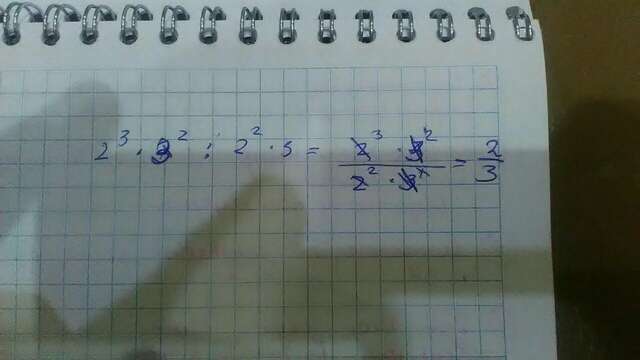 2³ · 3² : 2² · 3 = 2³ · 3² / 2² · 3¹ = 2/3